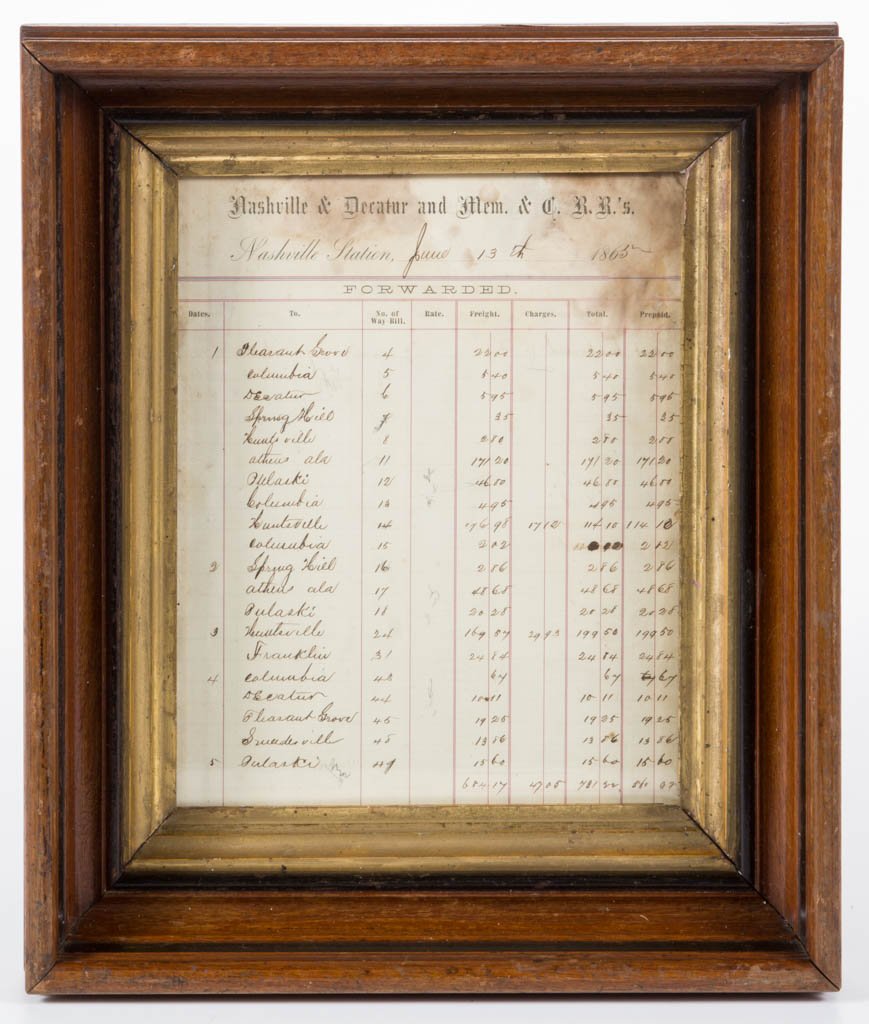 Nashville & Decatur and Mem. & C. R.R.'s.
Nashville Station, June 13th 1865
FORWARDED.
Dates. To. No. of Way Bill. Rate. Freight. Charges. Total. Prepaid.
1 Pleasant Grove 4 22 00 22 00 22 00
Columbia 5 5 40 5 40 5 40
Decatur 6 5 95 5 95 5 95
Spring Hill 7 35 35 35
Huntsville 8 2 80 2 80 2 80
athens ala 11 171 20 171 20 171 20
Pulaski 12 46 00 46 00 46 00
Columbia 13 4 95 4 95 4 95
Huntsville 14 98 17 12 114 10 114 10
Columbia 15 2 02 2 02
2 Spring Hill 16 2 86 2 86 2 86
athens ala 17 48 68 48 68 48 68
Pulaski 18 20 28 20 28 20 28
3 Huntsville 24 169 57 29 93 199 50 199 50
Franklin 31 24 84 24 84 24 84
4 Columbia 42 67 67 67
Decatur 44 10 11 10 11 10 11
Pleasant Grove 45 19 25 19 25 19 25
48 13 86 13 86 13 86
5 Pulaski 49 15 60 15 60 15 60
684 17 47 05